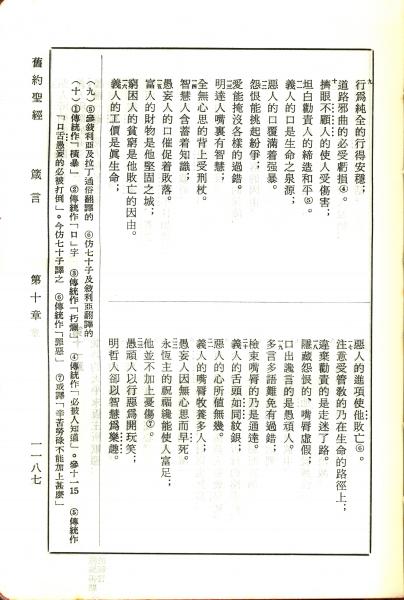 舊約聖經 箴言 第十章 一一八七
九
行爲純全的行得安穩；
道路邪曲的必受虧損④。
十
擠眼不顧人的使人受傷害；
坦白勸責人的締造和平⑤。
十一
義人的口是生命之泉源；
惡人的口覆滿着强暴。
十二
怨恨能挑起紛爭；
愛能掩沒各樣的過錯。
十三
明達人嘴裏有智慧；
全無心思的背上受刑杖。
十四
智慧人含蓄着知識；
愚妄人的口催促着敗落。
十五
富人的財物是他堅固之城；
窮困人的貧窮是他敗亡的因由。
十六
義人的工價是眞生命；
惡人的進項使他敗亡⑥。
十七
注意受管教的乃在生命的路徑上；
違棄勸責的是走迷了路。
十八
隱藏怨恨的、嘴脣虛假；
口出讒言的是愚頑人。
十九
多言多語難免有過錯；
檢束嘴脣的乃是通達。
二十
義人的舌頭如同紋銀；
惡人的心所値無幾。
二一
義人的嘴脣牧養多人；
愚妄人因無心思而早死。
二二
永恆主的祝福纔能使人富足；
他並不加上憂傷⑦。
二三
愚頑人以行惡爲開玩笑；
明哲人卻以智慧爲樂趣。
（九）⑤參敘利亞及拉丁通俗翻譯的 ⑥仿七十子及敘利亞翻譯的
（十）①傳統作「積暴」 ②傳統作「口」字 ③傳統作「朽爛」 ④傳統作「必被人知道」。參十一15 ⑤傳統作
「口舌愚妄的必被打倒」。今仿七十子譯之 ⑥傳統作「罪惡」 ⑦或譯「辛苦勞碌不能加上甚麼」